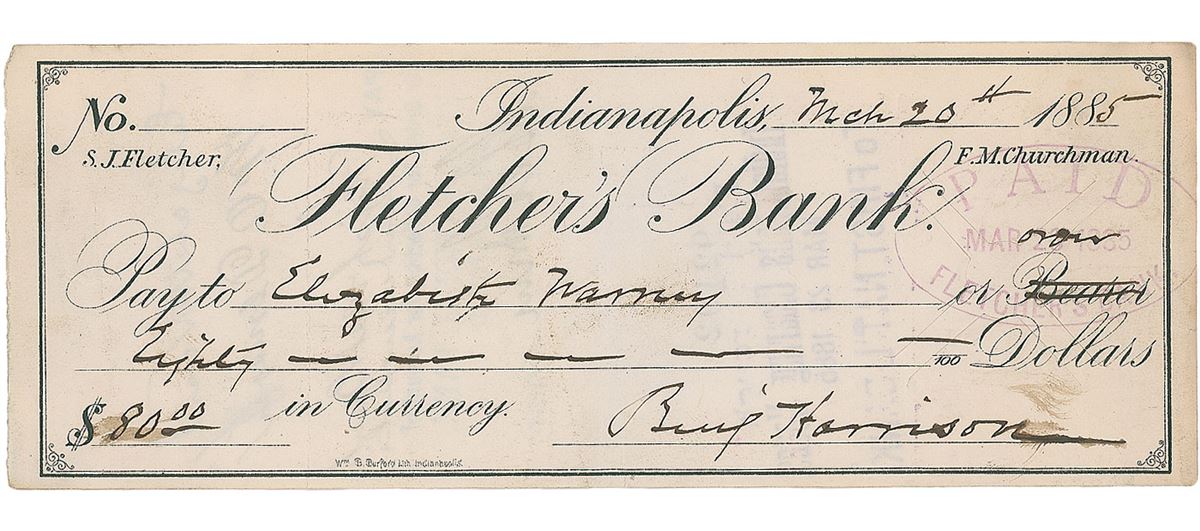 No. Indianapolis, Mch 20th 1885
S. J. Fletcher, F. M. Churchman.
Fletcher's Bank.
PAID
MAR 1885
FLETCHER'S
order
Pay to Elizabeth or Bearer
Eighty — — — — — /100 Dollars
$ 80 00 in Currency.
Benj Harrison
Wm B. Burford Lith. Indianapolis.